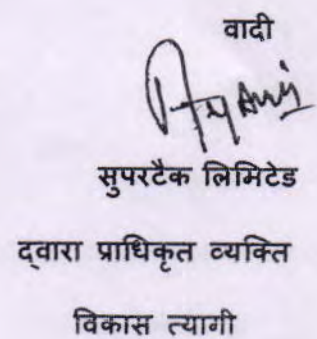 वादी
सुपरटैक लिमिटेड
द्वारा प्राधिकृत व्यक्ति
विकास त्यागी